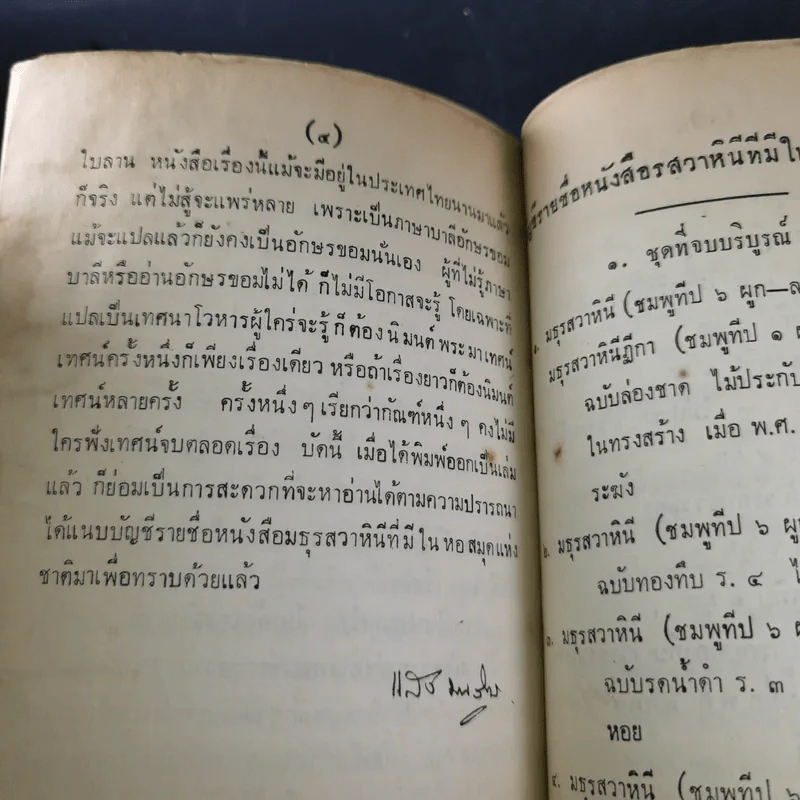 (๔)
ใบลาน หนังสือเรื่องนี้แม้จะมีอยู่ในประเทศไทยนานมาแล้ว
ก็จริง แต่ไม่สู้จะแพร่หลาย เพราะเป็นภาษาบาลีอักษรขอม
แม้จะแปลแล้วก็ยังคงเป็นอักษรขอมนั่นเอง ผู้ที่ไม่รู้ภาษา
บาลีหรืออ่านอักษรขอมไม่ได้ ก็ไม่มีโอกาสจะรู้ โดยเฉพาะที่
แปลเป็นเทศนาโวหารผู้ใคร่จะรู้ก็ต้องนิมนต์พระมาเทศน์
เทศน์ครั้งหนึ่งก็เพียงเรื่องเดียว หรือถ้าเรื่องยาวก็ต้องนิมนต์
เทศน์หลายครั้ง ครั้งหนึ่ง ๆ เรียกว่ากัณฑ์หนึ่ง ๆ คงไม่มี
ใครฟังเทศน์จบตลอดเรื่อง บัดนี้ เมื่อได้พิมพ์ออกเป็นเล่ม
แล้ว ก็ย่อมเป็นการสะดวกที่จะหาอ่านได้ตามความปรารถนา
ได้แนบบัญชีรายชื่อหนังสือมธุรสวาหินีที่มีในหอสมุดแห่ง
ชาติมาเพื่อทราบด้วยแล้ว
รายชื่อหนังสือรสวาหินีที่มีใน
๑. ชุดที่จบบริบูรณ์
๑. มธุรสวาหินี (ชมพูทีป ๖ ผูก—
มธุรสวาหินีฎีกา (ชมพูทีป ๑
ฉบับล่องชาด ไม้ประกับ
ในทรงสร้าง เมื่อ พ.ศ.
ระฆัง
๒. มธุรสวาหินี (ชมพูทีป ๖ ผูก
ฉบับทองทึบ ร. ๔
๓. มธุรสวาหินี (ชมพูทีป ๖
ฉบับรดน้ำดำ ร. ๓
หอย
๔. มธุรสวาหินี (ชมพูทีป ๖